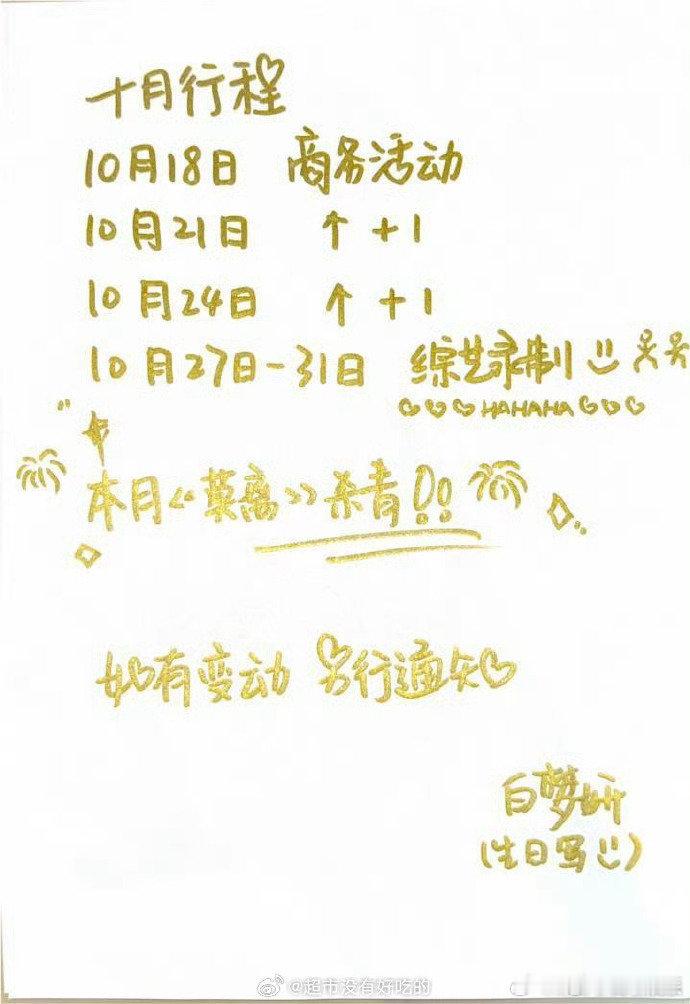 十月行程
10月18日 商务活动
10月21日 ↑ +1
10月24日 ↑ +1
10月27日-31日 综艺录制
HAHAHA
本月《莱离》杀青!!
如有变动 另行通知
白梦妍
(生日写)
@超市没有好吃的